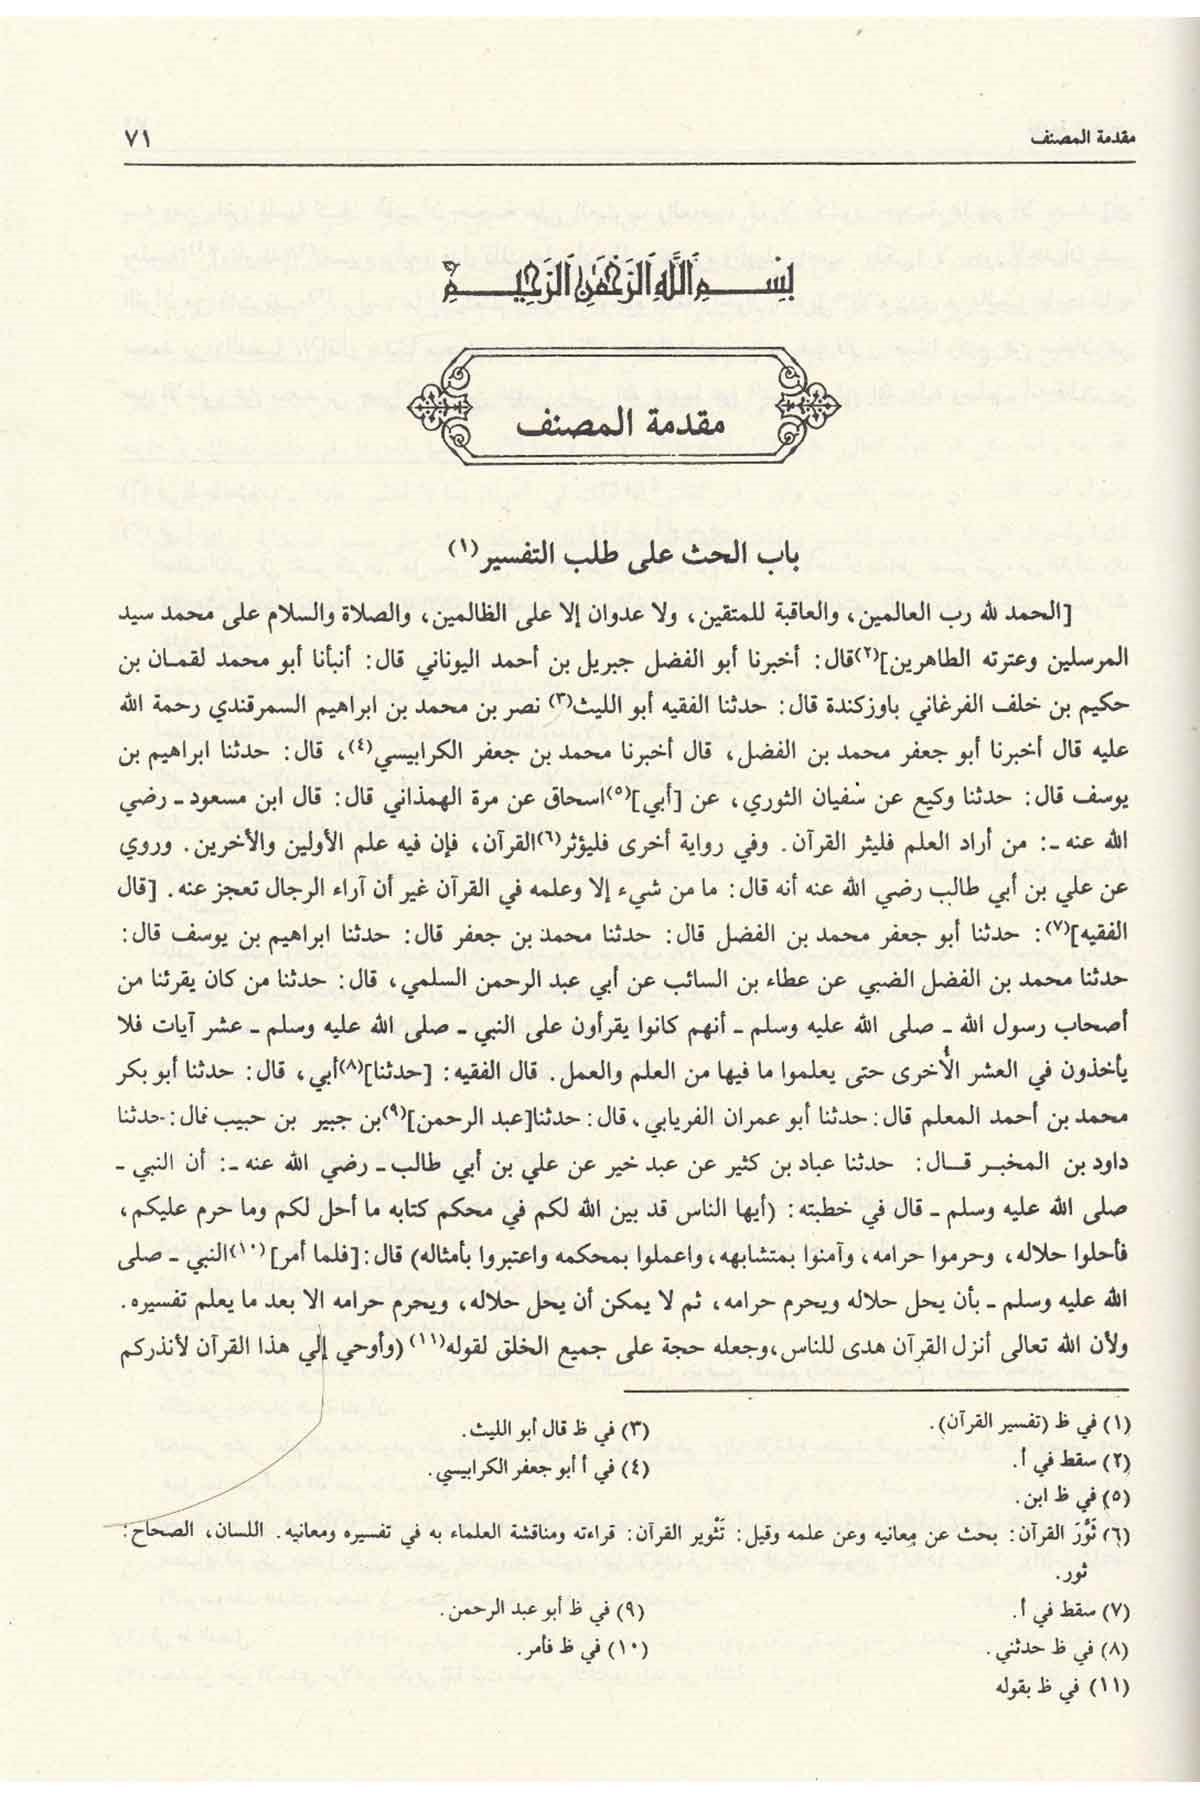 مقدمة المصنف
٧١
بسم الله الرحمن الرحيم
مقدمة المصنف
باب الحث على طلب التفسير (١)
[الحمد لله رب العالمين، والعاقبة للمتقين، ولا عدوان إلا على الظالمين، والصلاة والسلام على محمد سيد
المرسلين وعترته الطاهرين](٢)قال: أخبرنا أبو الفضل جبريل بن أحمد اليوناني قال: أنبأنا أبو محمد لقمان بن
حكيم بن خلف الفرغاني باوزكندة قال: حدثنا الفقيه أبو الليث(٣) نصر بن محمد بن ابراهيم السمرقندي رحمة الله
عليه قال أخبرنا أبو جعفر محمد بن الفضل، قال أخبرنا محمد بن جعفر الكرابيسي(٤)، قال: حدثنا ابراهيم بن
يوسف قال: حدثنا وكيع عن سفيان الثوري، عن [أبي](٥)اسحاق عن مرة الهمذاني قال: قال ابن مسعود ـ رضي
الله عنه ـ: من أراد العلم فليثر القرآن. وفي رواية أخرى فليؤثر(٦)القرآن، فإن فيه علم الأولين والأخرين. وروي
عن علي بن أبي طالب رضي الله عنه أنه قال: ما من شيء إلا وعلمه في القرآن غير أن آراء الرجال تعجز عنه. [قال
الفقيه](٧): حدثنا أبو جعفر محمد بن الفضل قال: حدثنا محمد بن جعفر قال: حدثنا ابراهيم بن يوسف قال:
حدثنا محمد بن الفضل الضبي عن عطاء بن السائب عن أبي عبد الرحمن السلمي، قال: حدثنا من كان يقرئنا من
أصحاب رسول الله ـ صلى الله عليه وسلم ـ أنهم كانوا يقرأون على النبي ـ صلى الله عليه وسلم ـ عشر آيات فلا
يأخذون في العشر الأُخرى حتى يعلموا ما فيها من العلم والعمل. قال الفقيه: [حدثنا](٨)أبي، قال: حدثنا أبو بكر
محمد بن أحمد المعلم قال: حدثنا أبو عمران الفريابي، قال: حدثنا[عبد الرحمن](٩)بن جبير بن حبيب قال: حدثنا
داود بن المخبر قال: حدثنا عباد بن كثير عن عبد خير عن علي بن أبي طالب ـ رضي الله عنه ـ: أن النبي ـ
صلى الله عليه وسلم ـ قال في خطبته: (أيها الناس قد بين الله لكم في محكم كتابه ما أحل لكم وما حرم عليكم،
فأحلوا حلاله، وحرموا حرامه، وآمنوا بمتشابهه، واعملوا بمحكمه واعتبروا بأمثاله) قال:[فلما أمر] (١٠)النبي ـ صلى
الله عليه وسلم ـ بأن يحل حلاله ويحرم حرامه، ثم لا يمكن أن يحل حلاله، ويحرم حرامه الا بعد ما يعلم تفسيره.
ولأن الله تعالى أنزل القرآن هدى للناس،وجعله حجة على جميع الخلق لقوله(١١) (وأوحي إلي هذا القرآن لأنذركم
(١) في ظ (تفسير القرآن).
(٣) في ظ قال أبو الليث.
(٢) سقط في أ.
(٤) في أ أبو جعفر الكرابيسي.
(٥) في ظ ابن.
(٦) ثَوَّرَ القرآن: بحث عن معانيه وعن علمه وقيل: تَثْوير القرآن: قراءته ومناقشة العلماء به في تفسيره ومعانيه. اللسان، الصحاح:
ثور.
(٧) سقط في أ.
(٩) في ظ أبو عبد الرحمن.
(٨) في ظ حدثني.
(١٠) في ظ فأمر.
(١١) في ظ بقوله